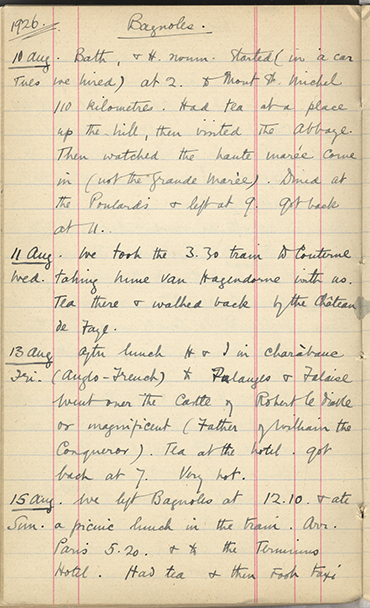 1926. Bagnoles.
10 Aug. Bath, & H. noum. Started (in a car
Tues we hired) at 2. to Mont St. Michel
110 kilometres. Had tea at a place
up the hill, then visited the Abbaye.
Then watched the haute marée come
in (not the Grande Marée). Dined at
the Poulards & left at 9. Got back
at 11.
11 Aug. We took the 3.30 train to Couterne
Wed. taking Mme Van Hagendorne with us.
Tea there & walked back by the Château
de Faye.
13 Aug After lunch H & I in charàbanc
Fri. (Anglo-French) to & Falaise
went over the Castle of Robert le Diable
or magnificent (Father of William the
Conqueror). Tea at the hotel. Got
back at 7. Very hot.
15 Aug. We left Bagnoles at 12.10. & ate
Sun. a picnic lunch in the train. Arr.
Paris 5.20. & to the Terminus
Hotel. Had tea & then took taxi